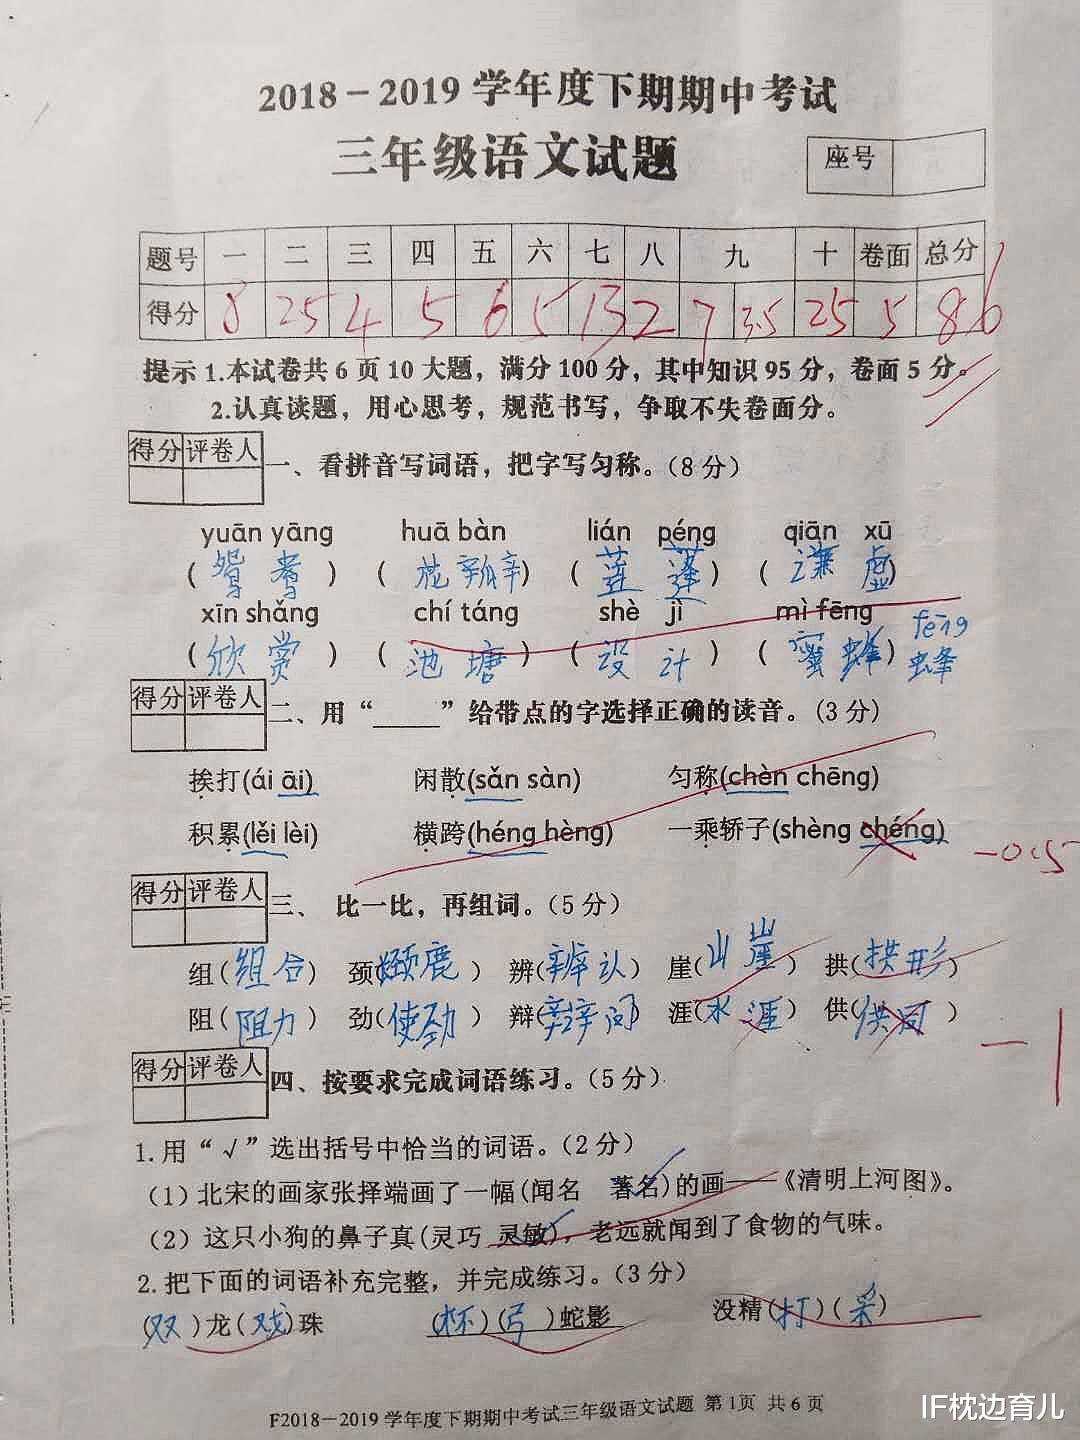 2018－2019 学年度下期期中考试
三年级语文试题
座号
题号 一 二 三 四 五 六 七 八 九 十 卷面 总分
得分 8 25 4 5 6 5 13 2 7 3.5 25 5 86
提示 1.本试卷共 6 页 10 大题，满分 100 分，其中知识 95 分，卷面 5 分。
2.认真读题，用心思考，规范书写，争取不失卷面分。
得分 评卷人
一、看拼音写词语，把字写匀称。（8 分）
yuān yāng huā bàn lián péng qiān xū
( 鸳 鸯 ) ( 花 瓣 ) ( 莲 蓬 ) ( 谦 虚 )
xīn shǎng chí táng shè jì mì fēng
( 欣 赏 ) ( 池 塘 ) ( 设 计 ) ( 蜜 蜂 ) fēng 蜂
得分 评卷人
二、用“____”给带点的字选择正确的读音。(3 分)
挨打(ái āi) 闲散(sǎn sàn) 匀称(chèn chēng)
积累(lěi lèi) 横跨(héng hèng) 一乘轿子(shèng chéng) -0.5
得分 评卷人
三、 比一比，再组词。（5 分）
组( 组合 ) 颈( 颈鹿 ) 辨( 辨认 ) 崖( 山崖 ) 拱( 拱形 )
阻( 阻力 ) 劲( 使劲 ) 辩( 辩问 ) 涯( 水涯 ) 供( 供同 ) -1
得分 评卷人
四、按要求完成词语练习。（5 分）
1.用“√”选出括号中恰当的词语。（2 分）
（1）北宋的画家张择端画了一幅(闻名 著名✓)的画——《清明上河图》。
（2）这只小狗的鼻子真(灵巧 灵敏✓)，老远就闻到了食物的气味。
2.把下面的词语补充完整，并完成练习。（3 分）
(双)龙(戏)珠 (杯)(弓)蛇影 没精(打)(采)
F2018－2019 学年度下期期中考试三年级语文试题 第 1页 共 6 页
IF枕边育儿